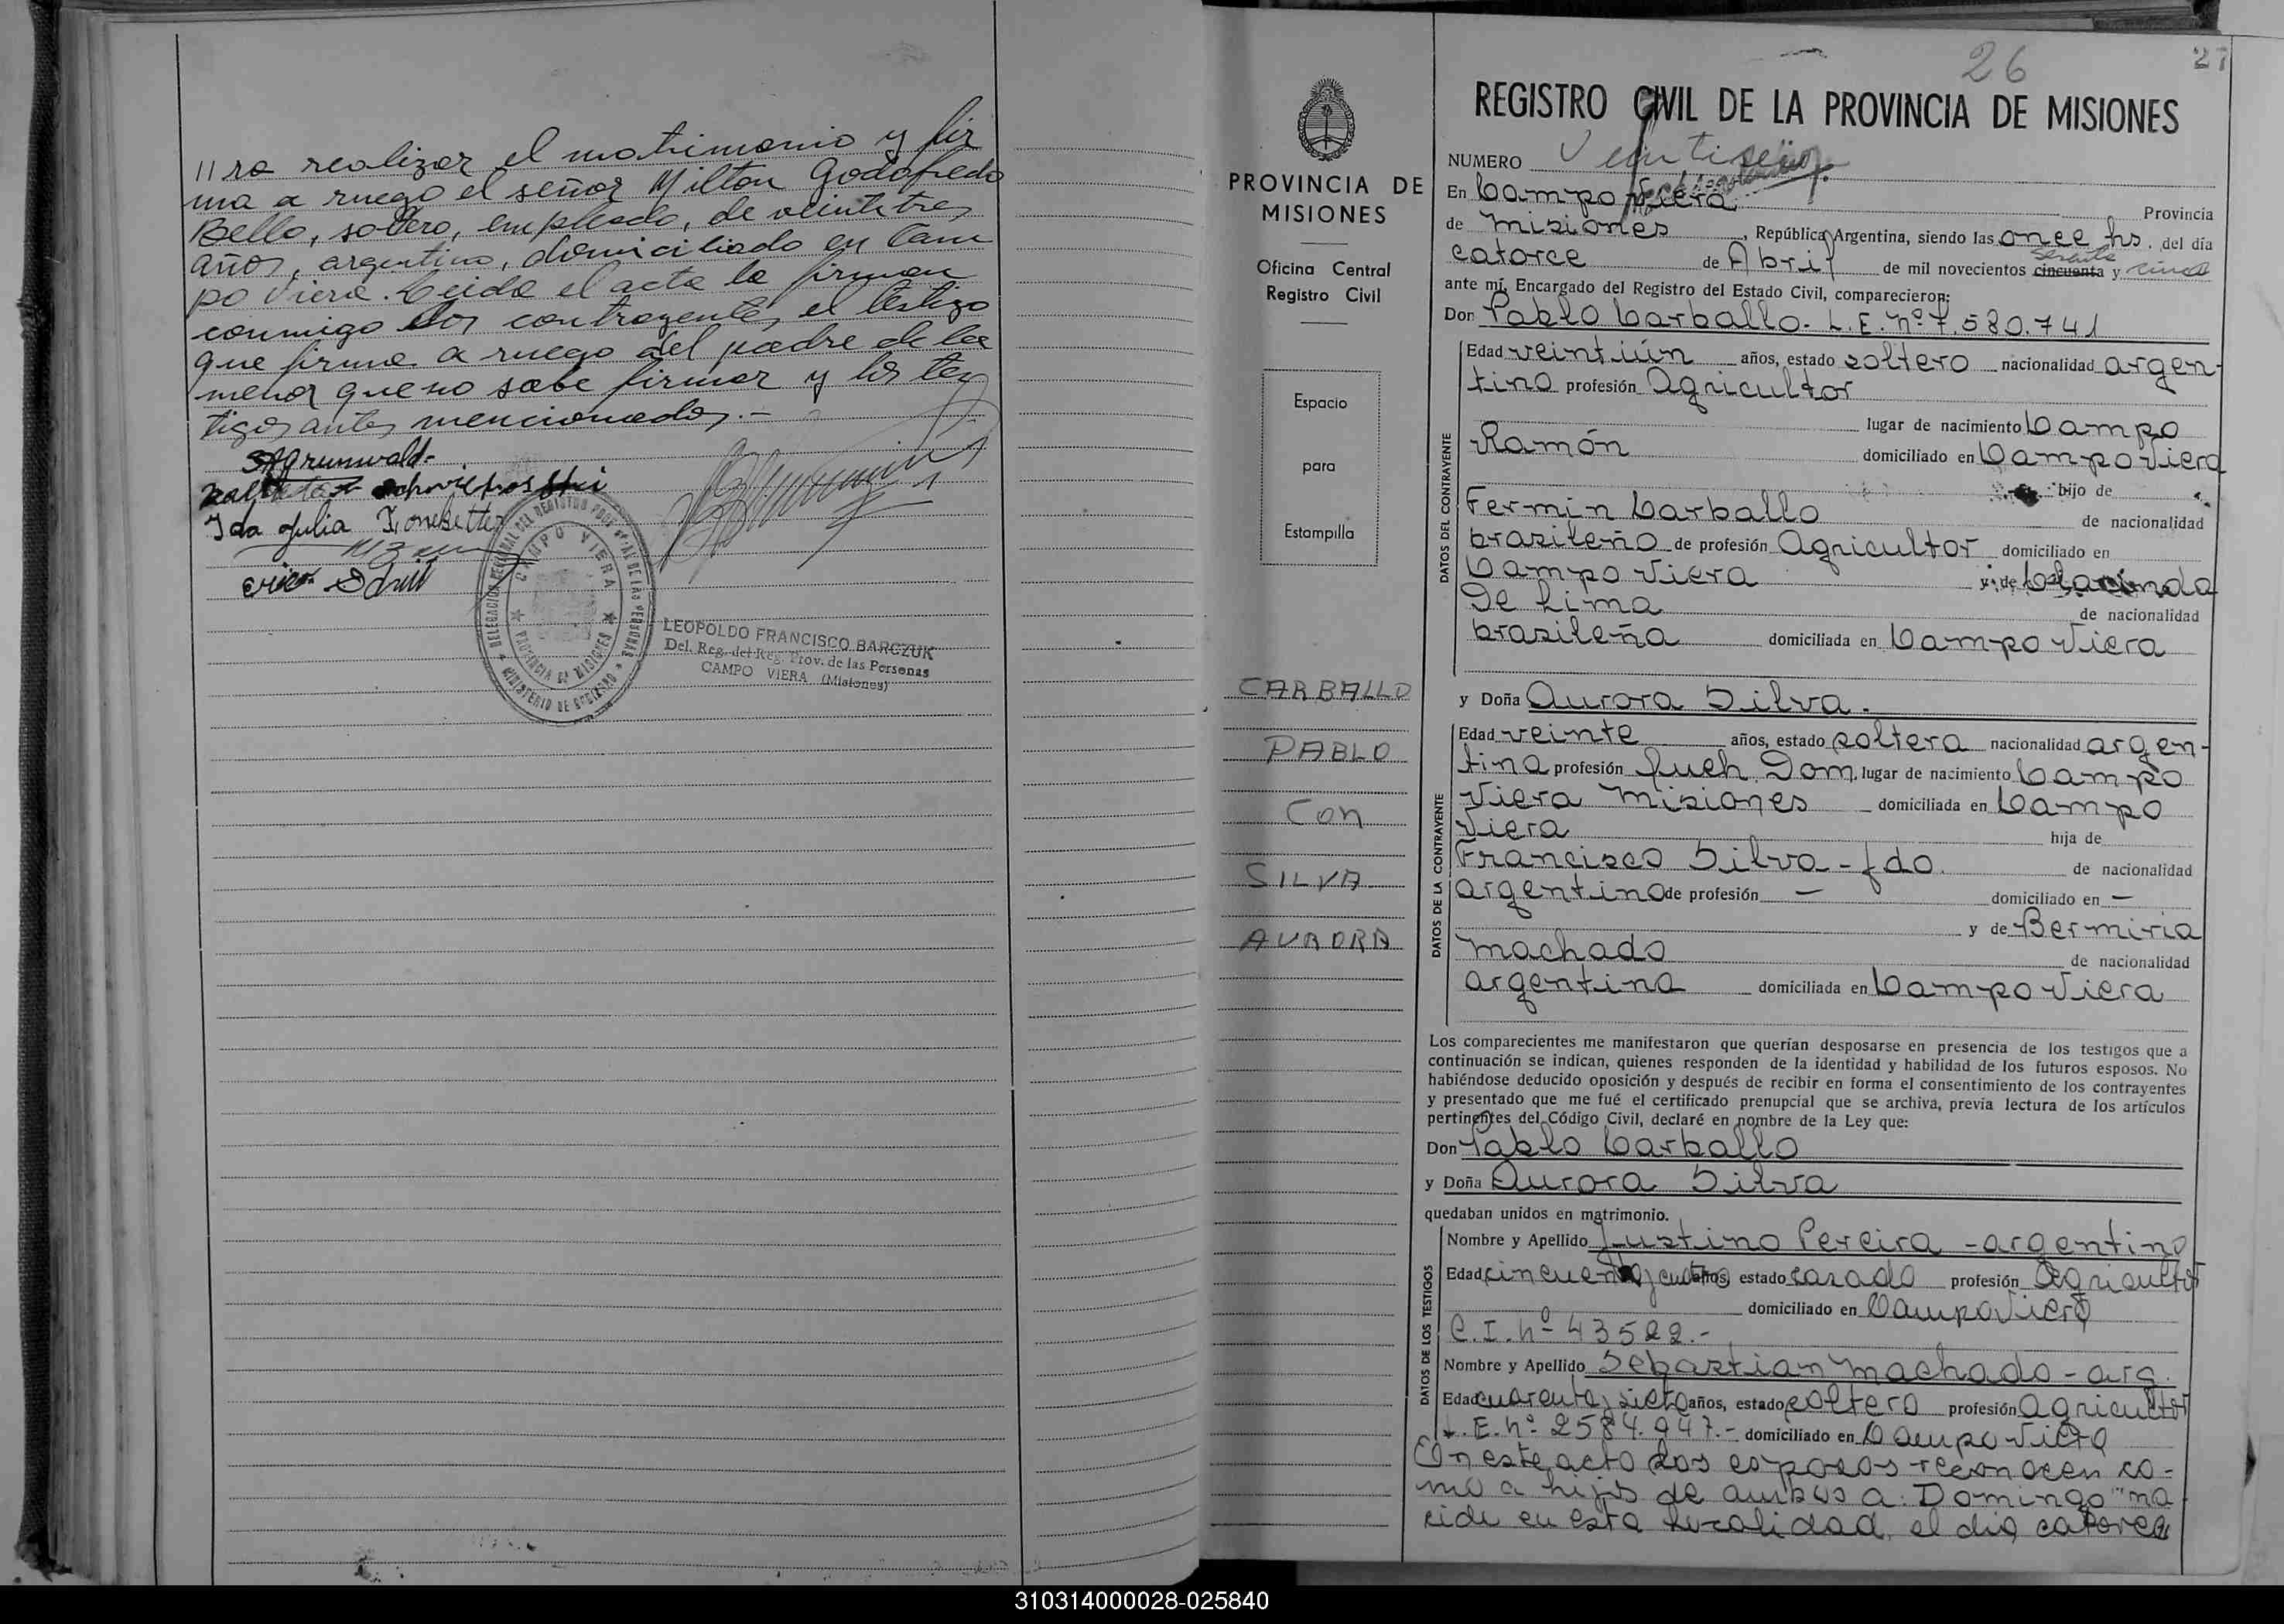 // ra realizar el matrimonio y fir
ma a ruego el señor Milton Godofredo
Bello, soltero, empleado, de veintitres
años, argentino, domiciliado en Cam
po Viera. Leida el acta la firman
conmigo los contrayentes, el testigo
que firma a ruego del padre de la
menor que no sabe firmar y los tes
tigos antes mencionados.-
SAGrunwald-
Ida Julia
LEOPOLDO FRANCISCO BARCZUK
Del. Reg. del Reg. Prov. de las Personas
CAMPO VIERA (Misiones)
CAMPO VIERA
PROVINCIA DE MISIONES
26
27
PROVINCIA DE
MISIONES
Oficina Central
Registro Civil
Espacio
para
Estampilla
CARBALLO
PABLO
CON
SILVA
AURORA
REGISTRO CIVIL DE LA PROVINCIA DE MISIONES
NUMERO Veintiseis
En Campo Viera Provincia
de Misiones, República Argentina, siendo las once hs. del día
catorce de Abril de mil novecientos cincuenta sesenta y cinco
ante mí, Encargado del Registro del Estado Civil, comparecieron:
Don Pablo Carballo.- L.E. nº 7.580.741
DATOS DEL CONTRAYENTE
Edad veintiún años, estado soltero nacionalidad argen-
tino profesión Agricultor
lugar de nacimiento Campo
Ramón domiciliado en Campo Viera
hijo de
Fermin Carballo de nacionalidad
brasileño de profesión Agricultor domiciliado en
Campo Viera y de
De Lima de nacionalidad
brasileña domiciliada en Campo Viera
y Doña Aurora Silva.
DATOS DE LA CONTRAYENTE
Edad veinte años, estado soltera nacionalidad argen-
tina profesión Dom. lugar de nacimiento Campo
Viera Misiones domiciliada en Campo
Viera hija de
Francisco Silva - fdo. de nacionalidad
argentino de profesión — domiciliado en —
y de Bermiria
Machado de nacionalidad
argentina domiciliada en Campo Viera
Los comparecientes me manifestaron que querían desposarse en presencia de los testigos que a
continuación se indican, quienes responden de la identidad y habilidad de los futuros esposos. No
habiéndose deducido oposición y después de recibir en forma el consentimiento de los contrayentes
y presentado que me fué el certificado prenupcial que se archiva, previa lectura de los artículos
pertinentes del Código Civil, declaré en nombre de la Ley que:
Don Pablo Carballo
y Doña Aurora Silva
quedaban unidos en matrimonio.
DATOS DE LOS TESTIGOS
Nombre y Apellido Justino Pereira - argentino
Edad cincuenta y cuatro años, estado casado profesión Agricultor
domiciliado en Campo Viera
C.I. nº 43522.-
Nombre y Apellido Sebastian Machado - arg.
Edad cuarenta y siete años, estado soltero profesión Agricultor
L.E. nº 2584.947.- domiciliado en Campo Viera
En este acto los esposos reconocen co-
mo a hijos de ambos a: Domingo "na
cido en esta localidad, el dia catorce
310314000028-025840